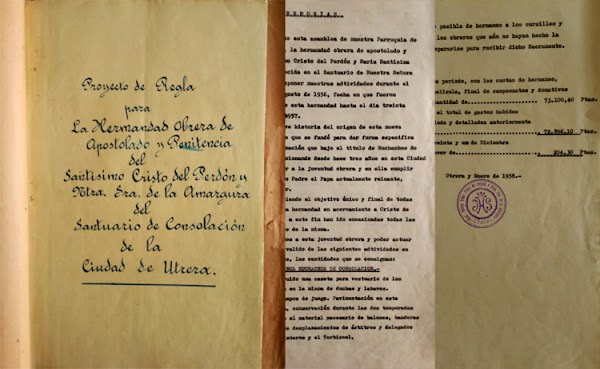 Proyecto de Regla
para
La Hermandad Obrera de
Apostolado y Penitencia
del
Santísimo Cristo del Perdón y
Ntra. Sra. de la Amargura
del
Santuario de Consolación
de la
Ciudad de Utrera.
MEMORIAS.
esta asamblea de nuestra Parroquia de
la hermandad obrera de apostolado y
o Cristo del Perdón y Maria Santísima
ecida en el Santuario de Nuestra Señora
xponer nuestras actividades durante el
gosto de 1956, fecha en que fueron
esta hermandad hasta el día treinta
957.
ve historia del origen de esta nueva
que se fundó para dar forma específica
ación que bajo el título de Muchachos de
cionando desde hace tres años en esta Ciudad
r a la juventud obrera y en ella cumplir
Padre el Papa actualmente reinante,
r.
iendo el objetivo único y final de todas
a hermandad en acercamiento a Cristo de
a este fin han ido encaminadas todas las
s de la misma.
nos a esta juventud obrera y poder actuar
valido de las siguientes actividades en
, las cantidades que se consignan:
TBOL MUCHACHOS DE CONSOLACION.-
uido una caseta para vestuario de los
en la misma de duchas y lavabos.
mpos de juego. Pavimentación en esta
, conservación durante las dos temporadas
el material necesario de balones, banderas
desplazamientos de árbitros y delegados
interno y el Torbiscal,
posible de hermano a los cursillos y
los obreros que aún no hayan hecho la
epararlos para recibir dicho Sacramento.
periodo, son las cuotas de hermanos,
película, final de campeonatos y donativos
antidad de 73,100,40 Ptas.
el total de gastos habidos
lado y detallados anteriormente
72,896,10 Ptas.
treinta y uno de Diciembre
or de 204,30 Ptas.
Utrera y Enero de 1958.-